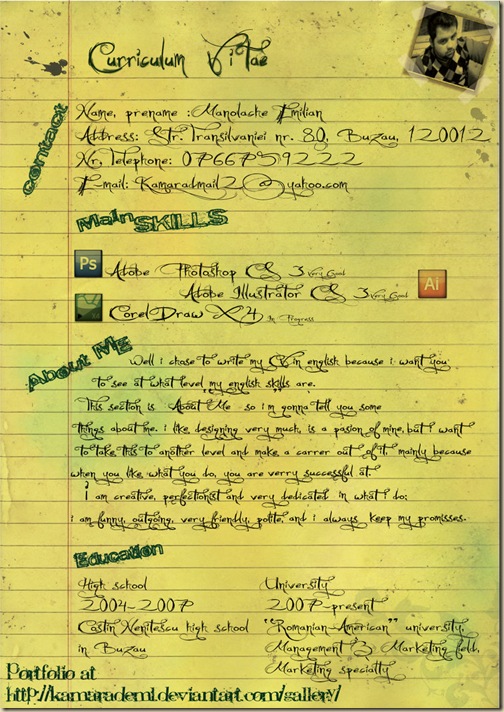 Curriculum Vitae
contact
Name, prename : Manolache Emilian
Address: Str. Transilvaniei nr. 80, Buzau, 120012
Nr. Telephone: 0766759222
E-mail: Kamaradmail2@yahoo.com
Main SKILLS
Ps Adobe Photoshop CS 3 Very Good
Adobe Illustrator CS 3 Very Good Ai
CorelDraw X4 In Progress
About Me
Well i chose to write my CV in english because i want you
to see at what level my english skills are.
This section is "About Me" so i'm gonna tell you some
things about me. i like designing very much, is a pasion of mine, but i want
to take this to another level and make a carrer out of it, mainly because
when you like what you do, you are verry successful at.
i am creative, perfectionist and very dedicated in what i do;
i am funny, outgoing, very friendly, polite, and i always keep my promisses.
Education
High school
2004-2007
Costin Nenitescu high school
in Buzau
University
2007-present
"Romanian-American" university
Management & Marketing field,
Marketing specialty
Portfolio at
http://kamarademl.deviantart.com/gallery/